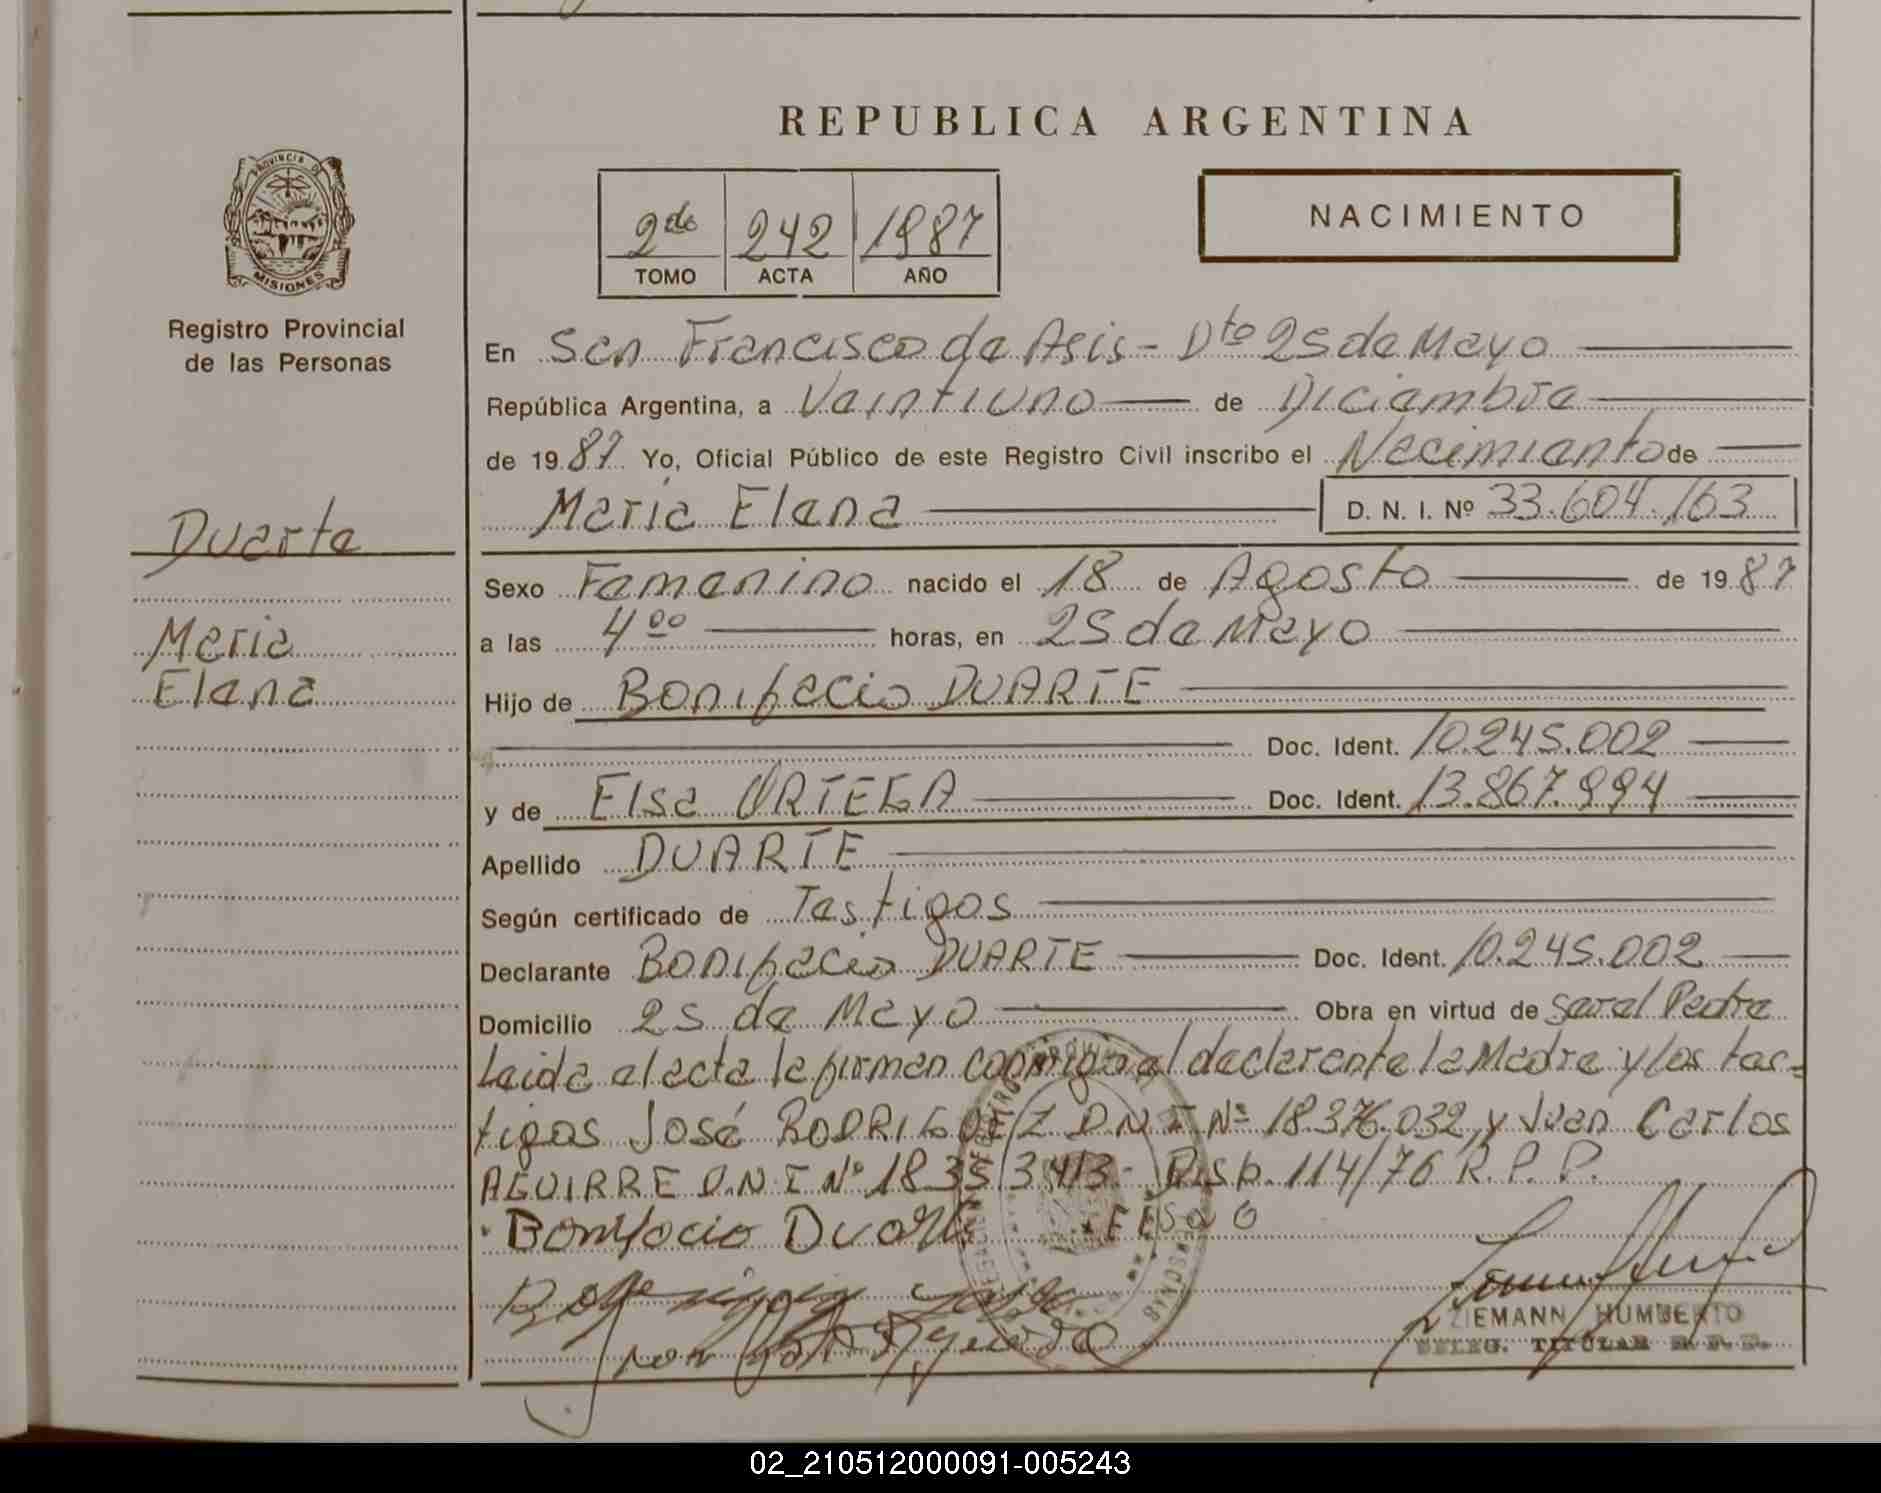 REPUBLICA ARGENTINA
PROVINCIA DE
MISIONES
Registro Provincial
de las Personas
2do 242 1987
TOMO ACTA AÑO
NACIMIENTO
En San Francisco de Asis - Dto 25 de Mayo
República Argentina, a Veintiuno de Diciembre
de 1987 Yo, Oficial Público de este Registro Civil inscribo el Nacimiento de
Maria Elena D. N. I. Nº 33.604.163
Duarte
Maria
Elena
Sexo Femenino nacido el 18 de Agosto de 1987
a las 4 00 horas, en 25 de Mayo
Hijo de Bonifacio DUARTE
Doc. Ident. 10.245.002
y de Elsa ORTEGA Doc. Ident. 13.867.994
Apellido DUARTE
Según certificado de Testigos
Declarante Bonifacio DUARTE Doc. Ident. 10.245.002
Domicilio 25 de Mayo Obra en virtud de ser el Padre
Leida el acta la firman conmigo el declarante la Madre y los tes=
tigos José RODRIGUEZ D N I Nº 18.376.032 y Juan Carlos
AGUIRRE D.N.I Nº 18.353.413 - Disp. 114/76 R.P.P.
Bonifacio Duarte
ZIEMANN HUMBERTO
DELEG. TITULAR R.P.P.
02_210512000091-005243